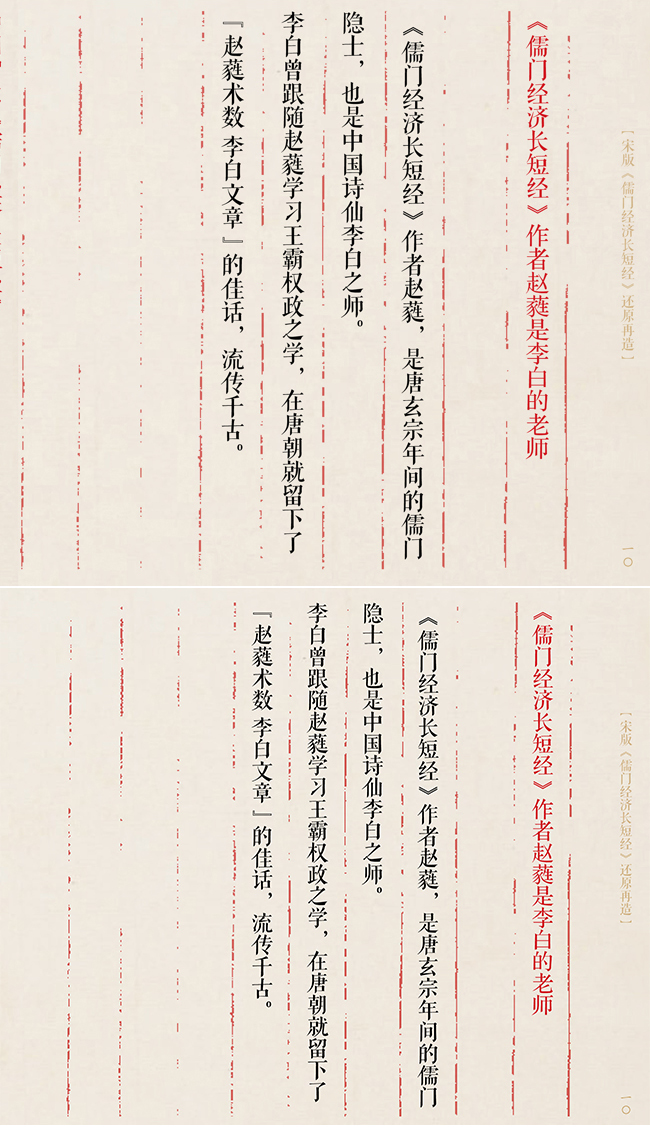 [宋版《儒门经济长短经》还原再造]
一〇
《儒门经济长短经》作者赵蕤是李白的老师
《儒门经济长短经》作者赵蕤，是唐玄宗年间的儒门
隐士，也是中国诗仙李白之师。
李白曾跟随赵蕤学习王霸权政之学，在唐朝就留下了
『赵蕤术数 李白文章』的佳话，流传千古。
[宋版《儒门经济长短经》还原再造]
一〇
《儒门经济长短经》作者赵蕤是李白的老师
《儒门经济长短经》作者赵蕤，是唐玄宗年间的儒门
隐士，也是中国诗仙李白之师。
李白曾跟随赵蕤学习王霸权政之学，在唐朝就留下了
『赵蕤术数 李白文章』的佳话，流传千古。